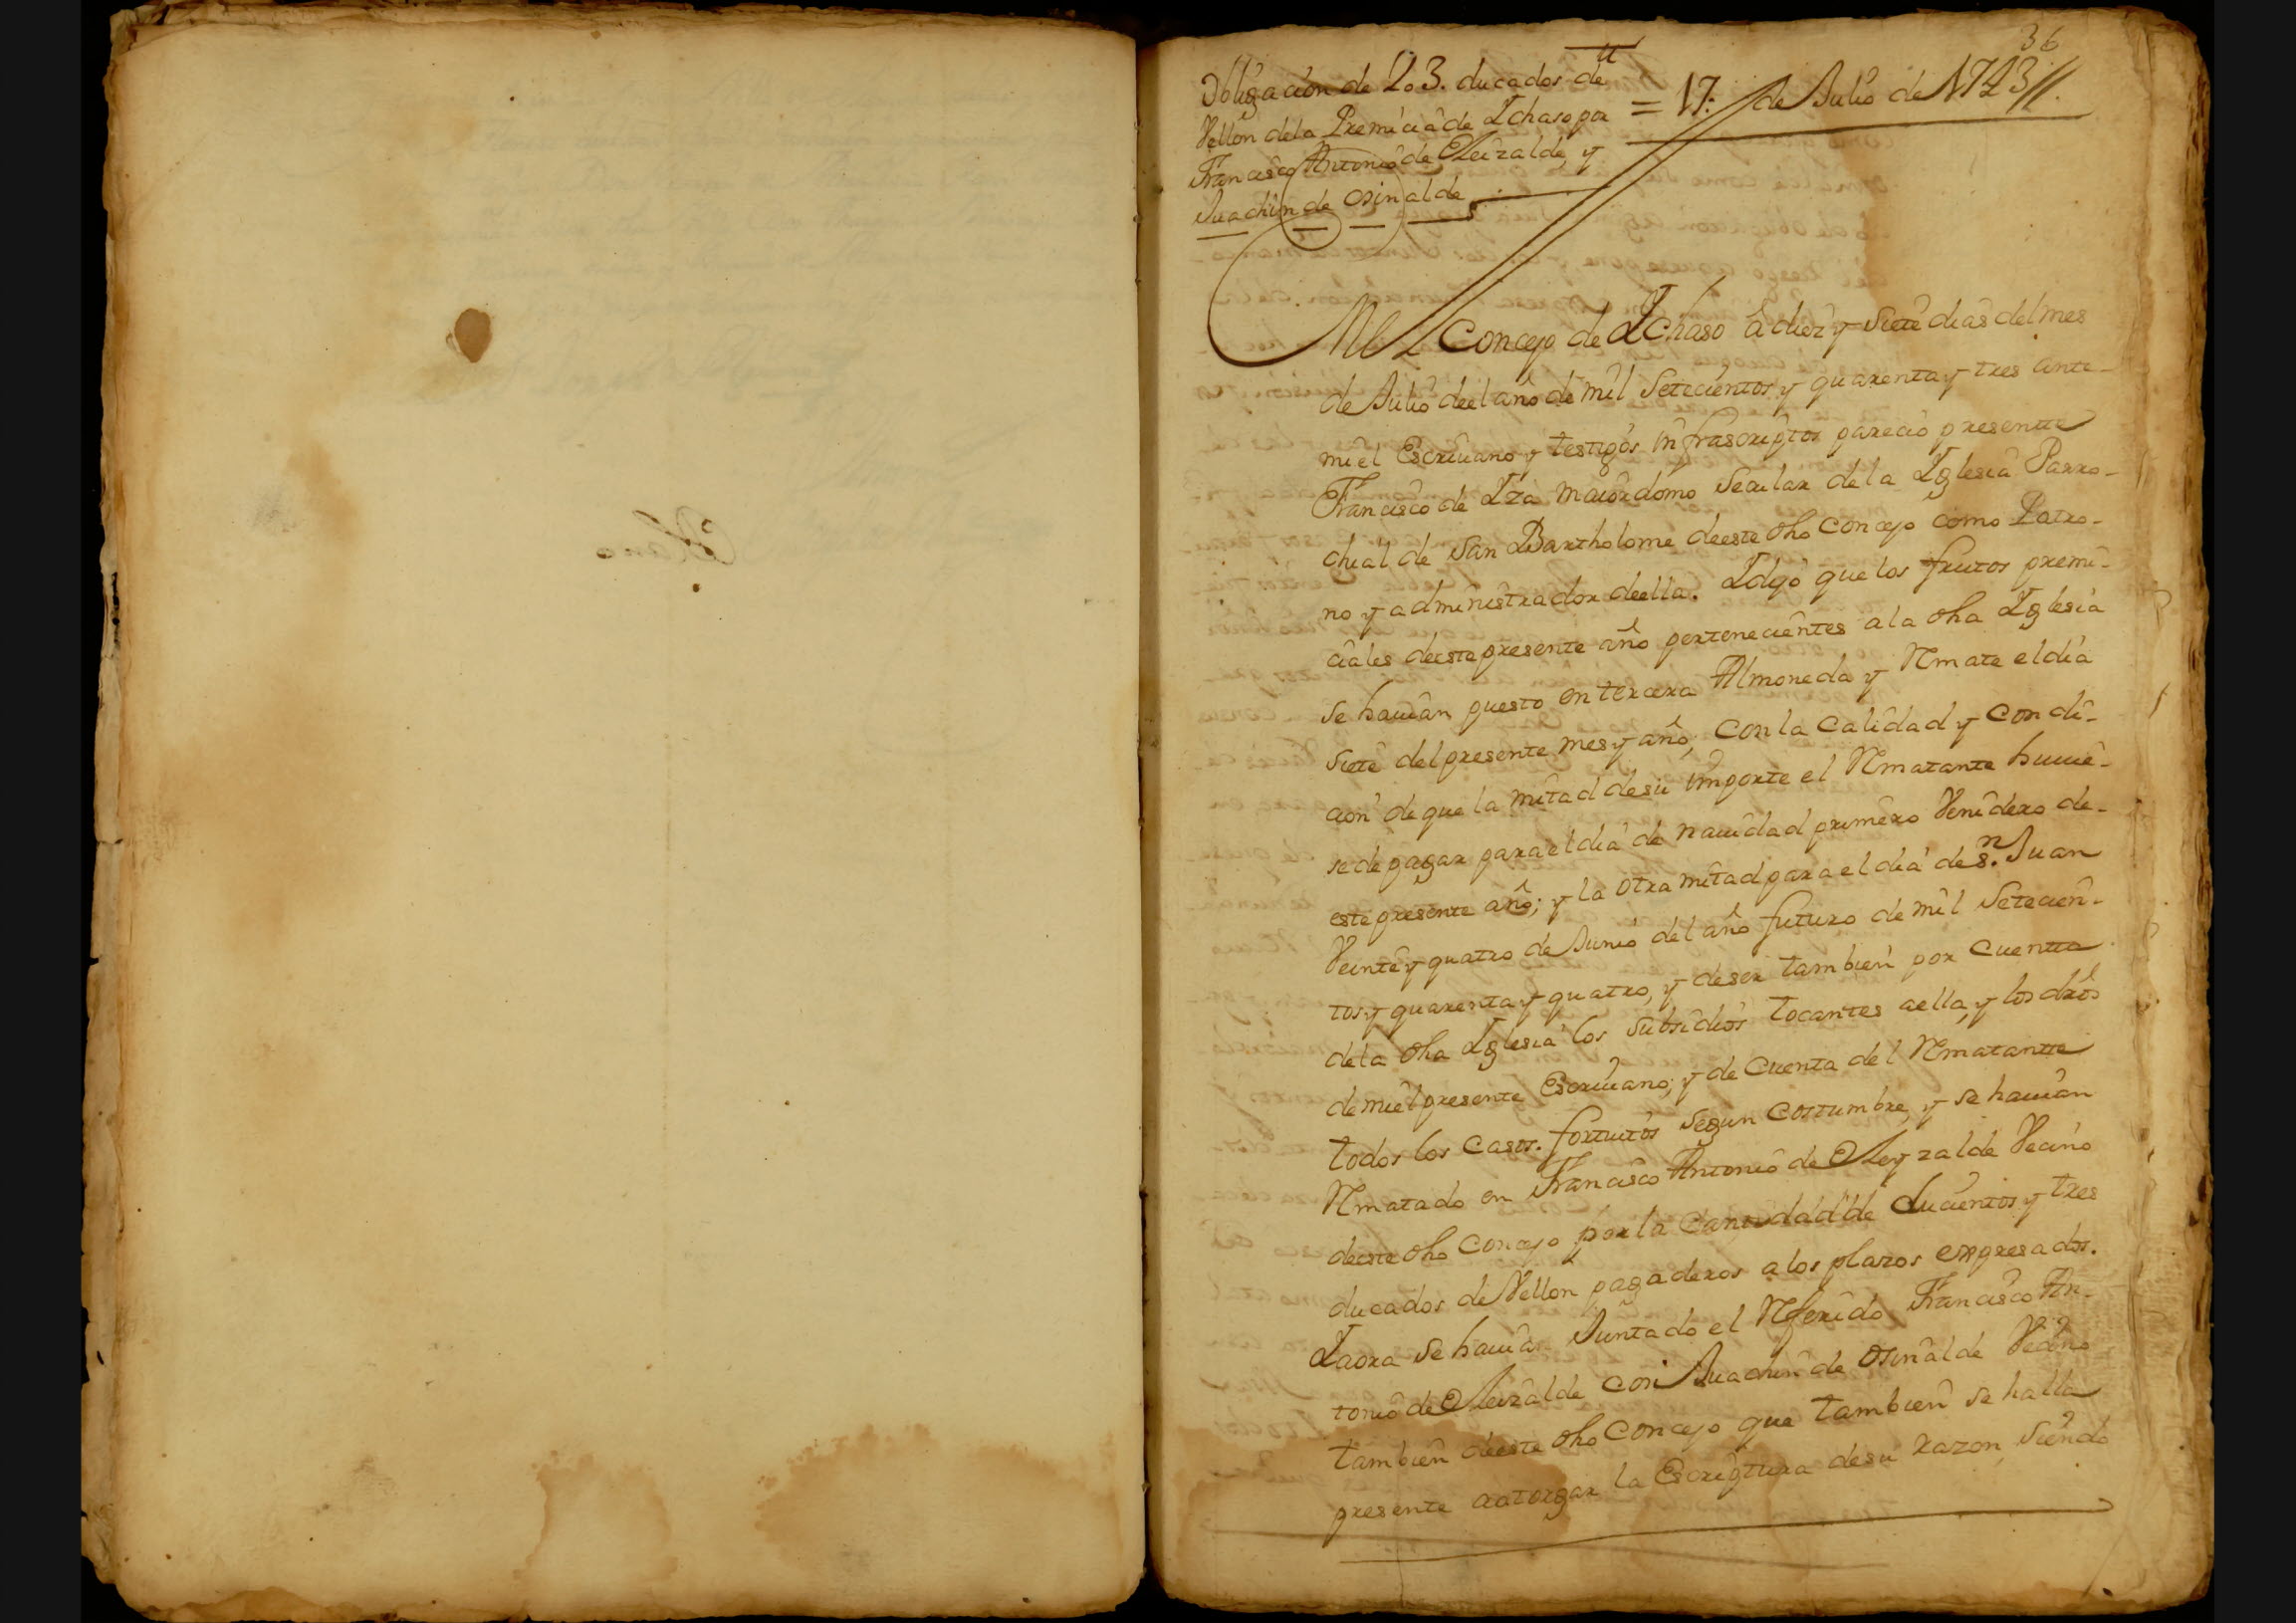 36
Obligacion de 203. ducados de u
Vellon dela Premiciâ de Ychaso por
Francisco Antonio de Oleizalde, y
Juachin de Osinalde
= 17: de Julio de 1743 //.
Concejo de Ychaso â diez y Siete dias del mes
de Julio deel año de mil Setecientos y quarenta y tres ante
mi el Escriuano y testigos infrascriptos pareciò presentte
Francisco de Yza maiordomo Secular de la Yglesia Parro-
chial de San Bartholome deeste dho Concejo como Patro-
no y administrador deella. Y dijo que los frutos premi-
ciales deeste presente año pertenecientes a la dha Yglesia
se hauian puesto en tercera Almoneda y Rmate el dia
siete del presente mes y año; con la Calidad y Condi-
cion de que la mitad de su importe el Rmatante huuie-
se de pagar para el dia de nauidad primero Venidero de-
este presente año; y la otra mitad para el dia de Sn. Juan
Veinte y quatro de Junio del año futuro de mil Setecien-
tos y quarenta y quatro, y deser tambien por Cuentta
dela dha Yglesia los Subsidios tocantes aella, y los dros
de mi el presente Escriuano; y de Cuenta del Rmatantte
todos los Casos fortuitos segun Costumbre, y se hauian
Rmatado en Francisco Antonio de Oleyzalde Vecino
deeste dho Concejo por la Cantidad de ducientos y tres
ducados de Vellon pagaderos a los plazos expresados.
Y aora se hauia Juntado el Rferido Francisco An-
tonio de Oleizalde con Juachin de Osinalde Vecino
tambien deeste dho Concejo que tambien se halla
presente aotorgar la Escripttura desu razon, Siendo